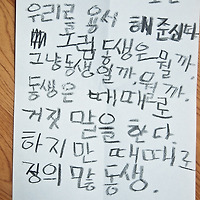 우리를 용서 해 준십다
그럼 동생은 뭘까.
그냥 동생일까. 뭘까.
동생은 때때로
거짓 말을 한다.
하지만 때때로
정의 많 동생.